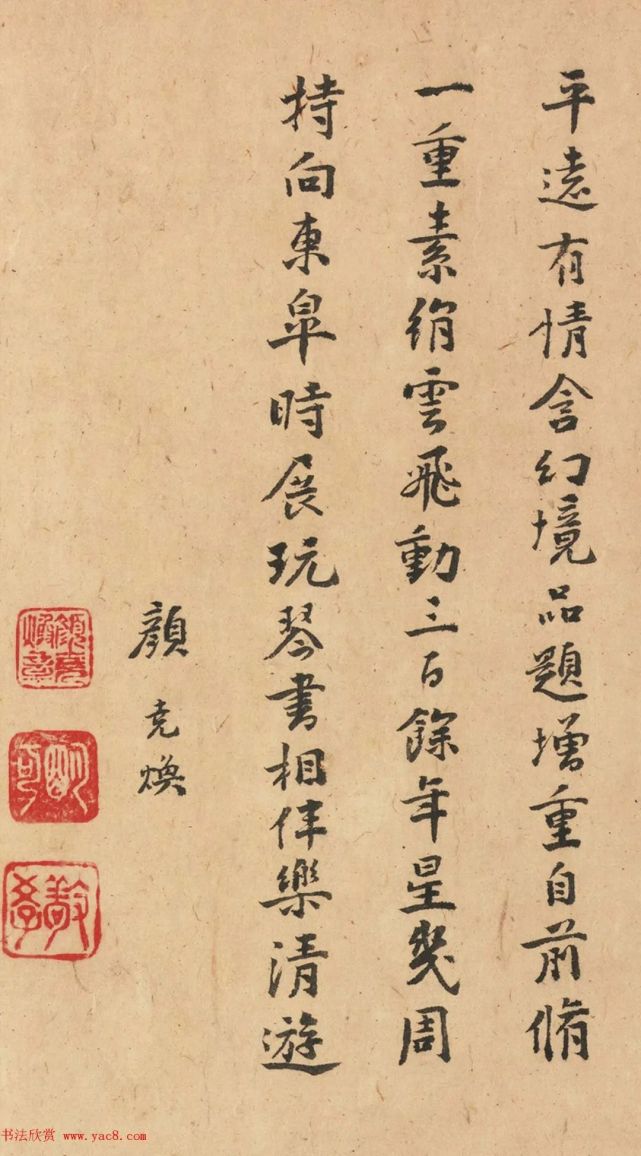 平遠有情含幻境品題增重自前脩
一重素絹雲飛動三百餘年星幾周
持向東皐時展玩琴書相伴樂清遊
顏堯煥
顏堯煥章
敷學
书法欣赏 www.yac8.com